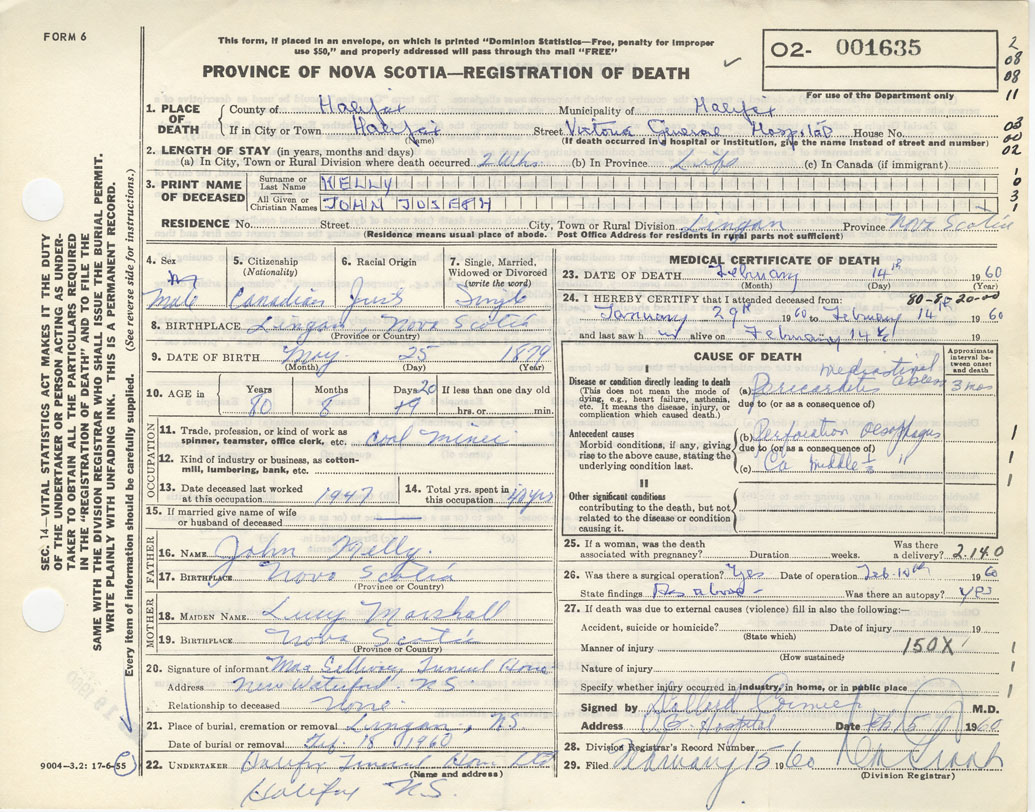 FORM 6
This form, if placed in an envelope, on which is printed "Dominion Statistics—Free, penalty for improper
use $50," and properly addressed will pass through the mail "FREE"
PROVINCE OF NOVA SCOTIA—REGISTRATION OF DEATH
O2- 001635
For use of the Department only
2
08
08
11
03
00
02
1
0
3
1
1. PLACE OF DEATH
County of Halifax Municipality of Halifax
If in City or Town Halifax Street Victoria General Hospital House No.
(Name) (If death occurred in a hospital or institution, give the name instead of street and number)
2. LENGTH OF STAY (in years, months and days)
(a) In City, Town or Rural Division where death occurred 2 Wks (b) In Province Life (c) In Canada (if immigrant)
3. PRINT NAME OF DECEASED
Surname or Last Name NELLY
All Given or Christian Names JOHN JOSEPH
RESIDENCE No. Street City, Town or Rural Division Lingan Province Nova Scotia
(Residence means usual place of abode. Post Office Address for residents in rural parts not sufficient)
4. Sex
Male
5. Citizenship
(Nationality)
Canadian
6. Racial Origin
7. Single, Married,
Widowed or Divorced
(write the word)
Single
8. BIRTHPLACE Lingan, Nova Scotia
(Province or Country)
9. DATE OF BIRTH May 25 1879
(Month) (Day) (Year)
10. AGE in Years Months Days If less than one day old
80 8 20 hrs. or min.
OCCUPATION
11. Trade, profession, or kind of work as
spinner, teamster, office clerk, etc. coal miner
12. Kind of industry or business, as cotton-
mill, lumbering, bank, etc.
13. Date deceased last worked
at this occupation 1947
14. Total yrs. spent in
this occupation
15. If married give name of wife
or husband of deceased
FATHER
16. NAME John Nelly.
17. BIRTHPLACE Nova Scotia
(Province or Country)
MOTHER
18. MAIDEN NAME Lucy Marshall
19. BIRTHPLACE Nova Scotia
(Province or Country)
20. Signature of informant Funeral Home
Address New Waterford. N.S.
Relationship to deceased None.
21. Place of burial, cremation or removal Lingan, N.S.
Date of burial or removal Feb. 18 1960
22. UNDERTAKER Halifax Funeral Home Ltd
(Name and address)
Halifax N.S.
MEDICAL CERTIFICATE OF DEATH
23. DATE OF DEATH February 14th 1960
(Month) (Day) (Year)
80-8-20-00
24. I HEREBY CERTIFY that I attended deceased from:
January 29th 1960 to February 14th 1960
and last saw h m alive on February 14th
CAUSE OF DEATH
Approximate
interval be-
tween onset
and death
I
Disease or condition directly leading to death
(This does not mean the mode of
dying, e.g., heart failure, asthenia,
etc. It means the disease, injury, or
complication which caused death.)
mediastinal
(a) Pericarditis abcess 3 mos
due to (or as a consequence of)
Antecedent causes
Morbid conditions, if any, giving
rise to the above cause, stating the
underlying condition last.
(b) Perforation Oesophagus
due to (or as a consequence of)
(c) Ca middle 1/3 "
II
Other significant conditions
contributing to the death, but not
related to the disease or condition
causing it.
1
1
1
25. If a woman, was the death
associated with pregnancy? Duration weeks. Was there
a delivery? 2.14.0
26. Was there a surgical operation? Yes Date of operation Feb. 10th 1960
State findings As above - Was there an autopsy? yes
27. If death was due to external causes (violence) fill in also the following:—
Accident, suicide or homicide? Date of injury 19
(State which)
Manner of injury 150X 1
(How sustained)
Nature of injury 1
Specify whether injury occurred in industry, in home, or in public place 1
Signed by Cormier M.D.
Address V.G. Hospital Date Feb 15 1960
28. Division Registrar's Record Number
29. Filed February 15 1960
(Division Registrar)
SEC. 14—VITAL STATISTICS ACT MAKES IT THE DUTY
OF THE UNDERTAKER OR PERSON ACTING AS UNDER-
TAKER TO OBTAIN ALL THE PARTICULARS REQUIRED
IN THE "REGISTRATION OF DEATH" AND TO FILE THE
SAME WITH THE DIVISION REGISTRAR WHO SHALL ISSUE THE BURIAL PERMIT.
WRITE PLAINLY WITH UNFADING INK. THIS IS A PERMANENT RECORD.
Every item of information should be carefully supplied. (See reverse side for instructions.)
9004—3.2: 17-6-55